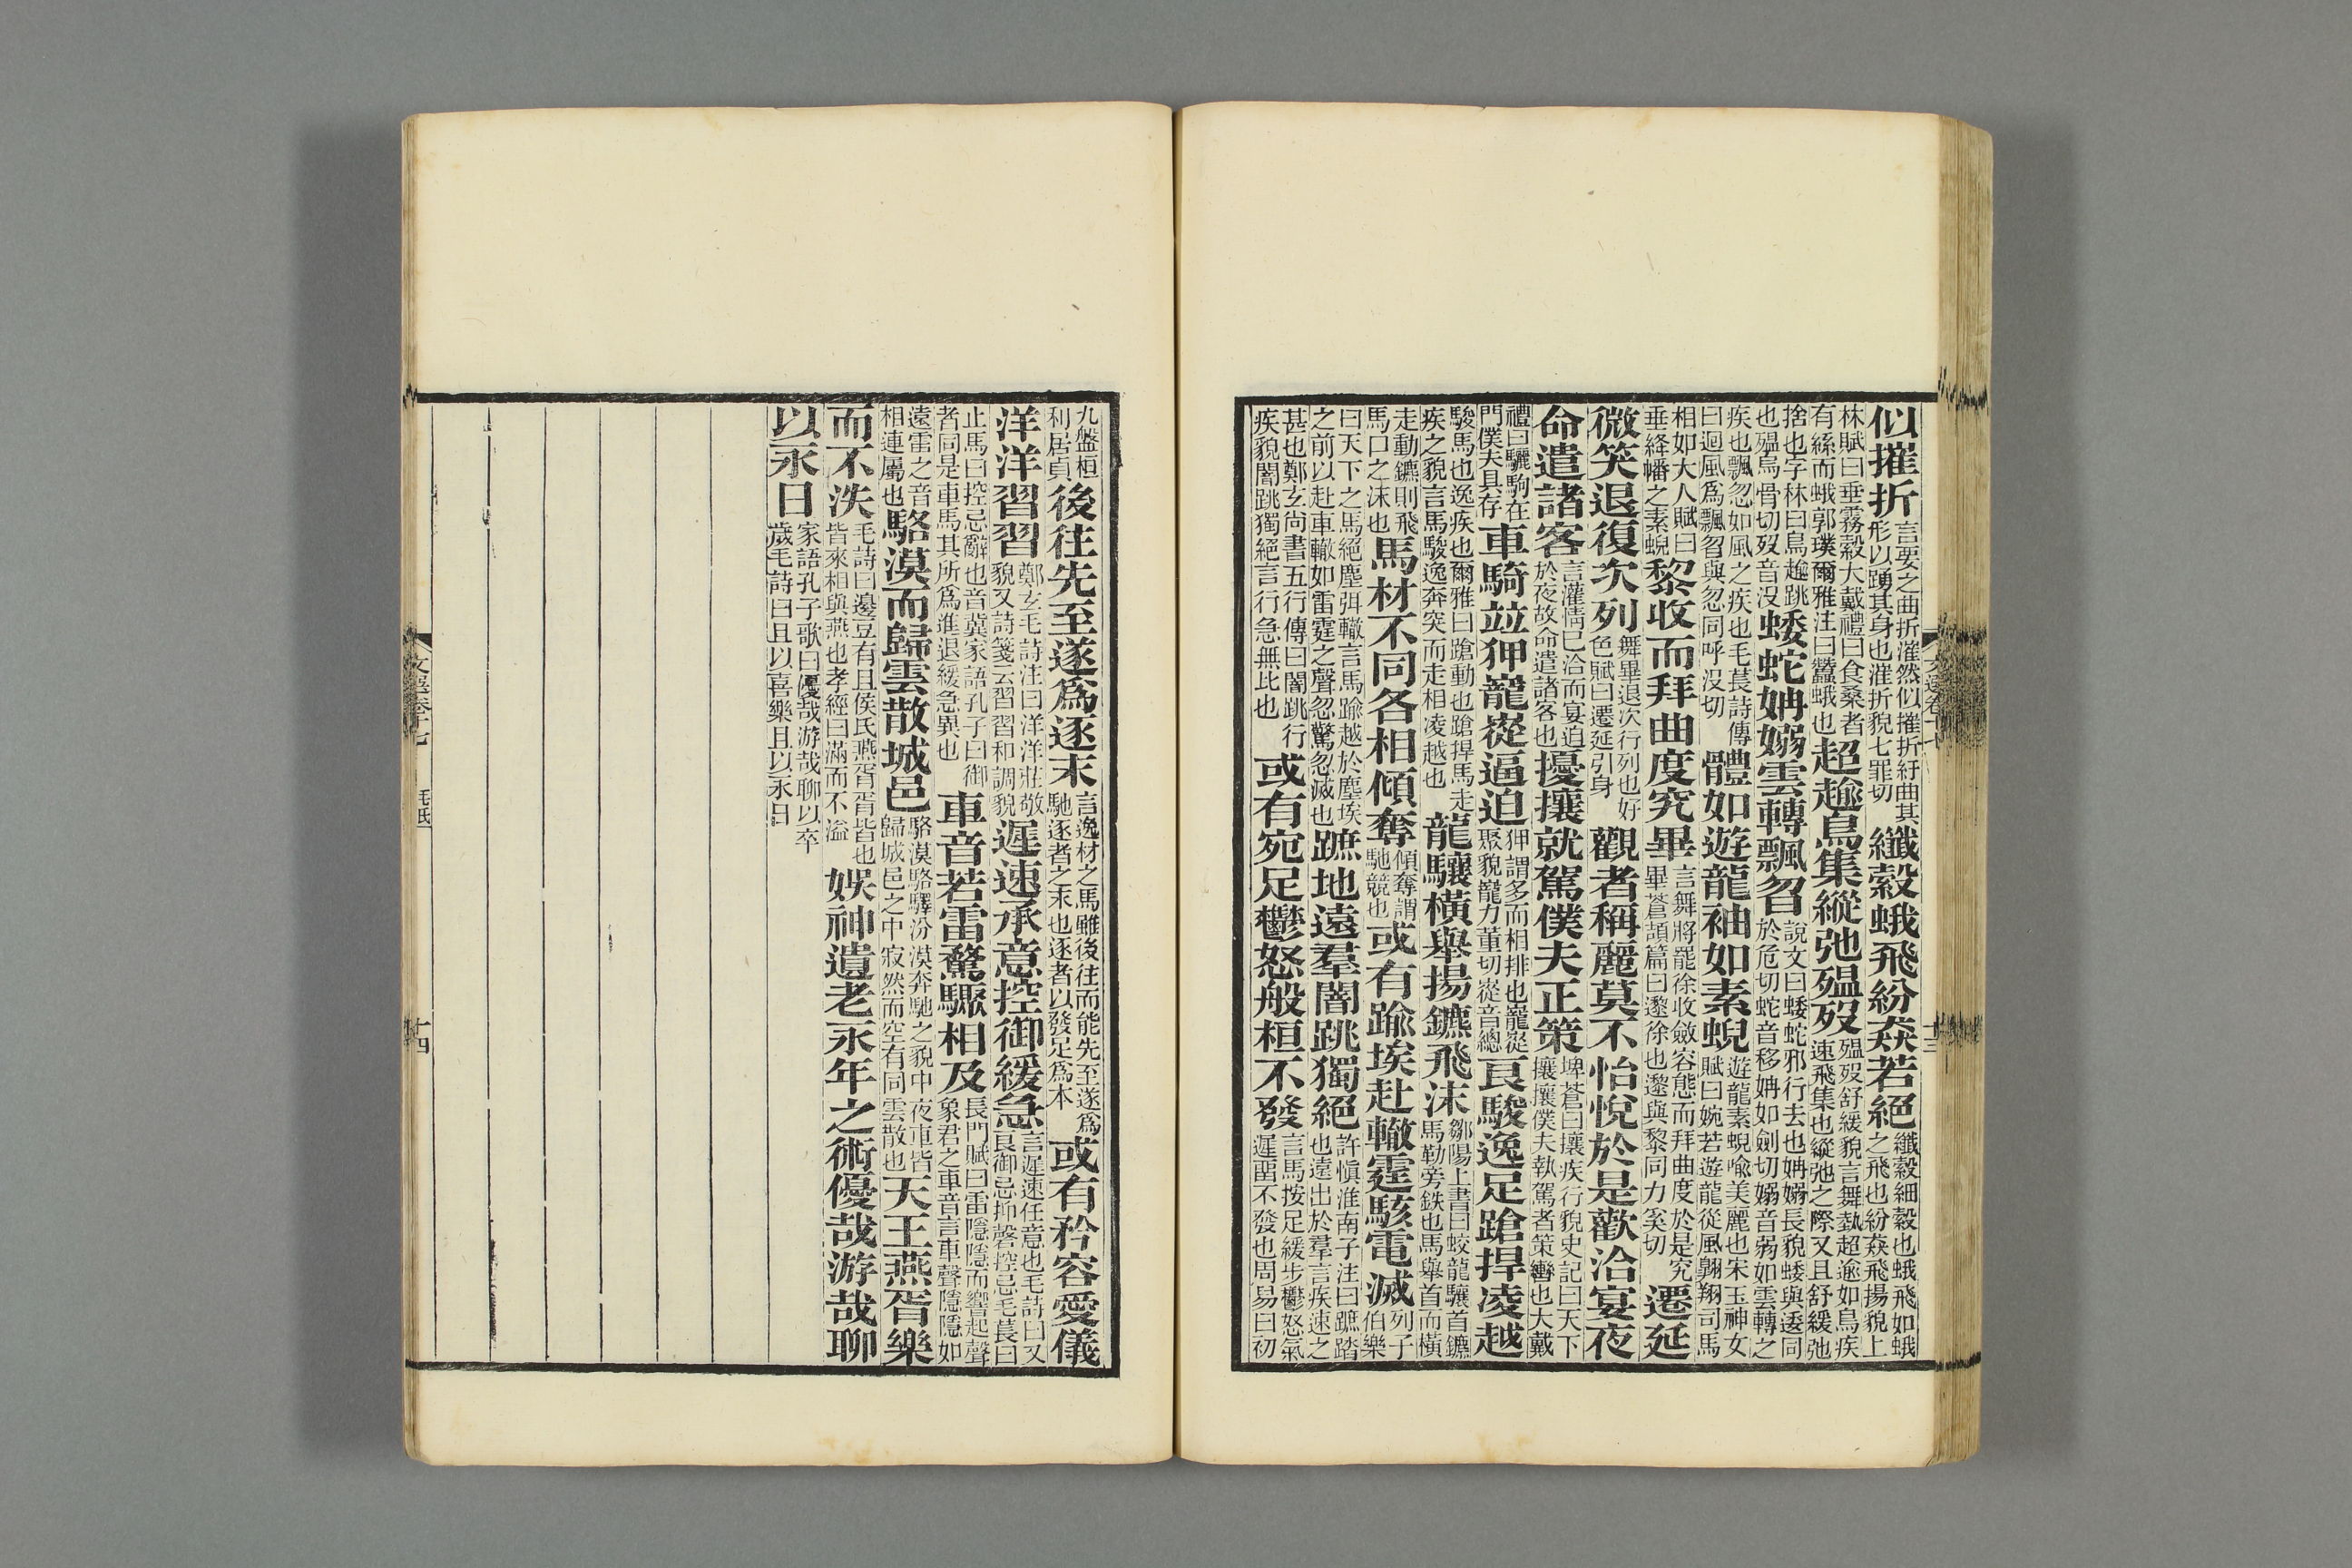 似摧折言要之曲折漼然似摧折紆曲其形以踊其身也漼折貌七罪切纖縠蛾飛紛猋若絕纖縠細縠也蛾飛如蛾之飛也紛猋飛揚貌上
林賦曰垂霧縠大戴禮曰食桑者有絲而蛾郭璞爾雅注曰蠶蛾也超䠣鳥集縱弛殟歿殟歿舒緩貌言舞埶超逾如鳥疾速飛集也縱弛之際又且舒緩弛
捨也字林曰鳥䠣跳也殟烏骨切歿音沒蜲蛇姌嫋雲轉飄曶說文曰蜲蛇邪行去也姌嫋長貌蜲與逶同於危切蛇音移姌如劍切嫋音弱如雲轉之
疾也飄忽如風之疾也毛萇詩傳曰迴風爲飄曶與忽同呼沒切體如遊龍袖如素蜺遊龍素蜺喻美麗也宋玉神女賦曰婉若遊龍從風翺翔司馬
相如大人賦曰垂絳幡之素蜺黎收而拜曲度究畢言舞將罷徐收斂容態而拜曲度於是究畢蒼頡篇曰邌徐也邌與黎同力奚切遷延
微笑退復次列舞畢退次行列也好色賦曰遷延引身觀者稱麗莫不怡悅於是歡洽宴夜
命遣諸客言灌情已洽而宴迫於夜故命遣諸客也擾攘就駕僕夫正策埤蒼曰攘疾行貌史記曰天下攘攘僕夫執駕者策轡也大戴
禮曰驪駒在門僕夫具存車騎竝狎巃嵸逼迫狎謂多而相排也巃嵸聚貌巃力董切嵸音總良駿逸足蹌捍凌越
駿馬也逸疾也爾雅曰蹌動也蹌捍馬走疾之貌言馬駿逸奔突而走相凌越也龍驤橫舉揚鑣飛沫鄒陽上書曰蛟龍驤首鑣馬勒旁鉄也馬舉首而橫
走動鑣則飛馬口之沫也馬材不同各相傾奪傾奪謂馳競也或有踰埃赴轍霆駭電滅列子伯樂
曰天下之馬絕塵弭轍言馬踰越於塵埃之前以赴車轍如雷霆之聲忽驚忽滅也蹠地遠羣闇跳獨絕許愼淮南子注曰蹠踏也遠出於羣言疾速之
甚也鄭玄尚書五行傳曰闇跳行疾貌闇跳獨絕言行急無比也或有宛足鬱怒般桓不發言馬按足緩步鬱怒氣遲畱不發也周易曰初
文選卷十七
十三
九盤桓利居貞後往先至遂爲逐末言逸材之馬雖後往而能先至遂爲馳逐者之末也逐者以發足爲本或有矜容愛儀
洋洋習習鄭玄毛詩注曰洋洋莊敬貌又詩箋云習習和調貌遲速承意控御緩急言遲速任意也毛詩曰又良御忌抑磬控忌毛萇曰
止馬曰控忌辭也音冀家語孔子曰御者同是車馬其所爲進退緩急異也車音若雷騖驟相及長門賦曰雷隱隱而響起聲象君之車音言車聲隱隱如
遠雷之音相連屬也駱漠而歸雲散城邑駱漠駱驛汾漠奔馳之貌中夜車皆歸城邑之中寂然而空有同雲散也天王燕胥樂
而不泆毛詩曰邊豆有且侯氏燕胥胥皆也皆來相與燕也孝經曰滿而不溢娛神遺老永年之術優哉游哉聊
以永日家語孔子歌曰優哉游哉聊以卒歲毛詩曰且以喜樂且以永日
文選卷十七
十四